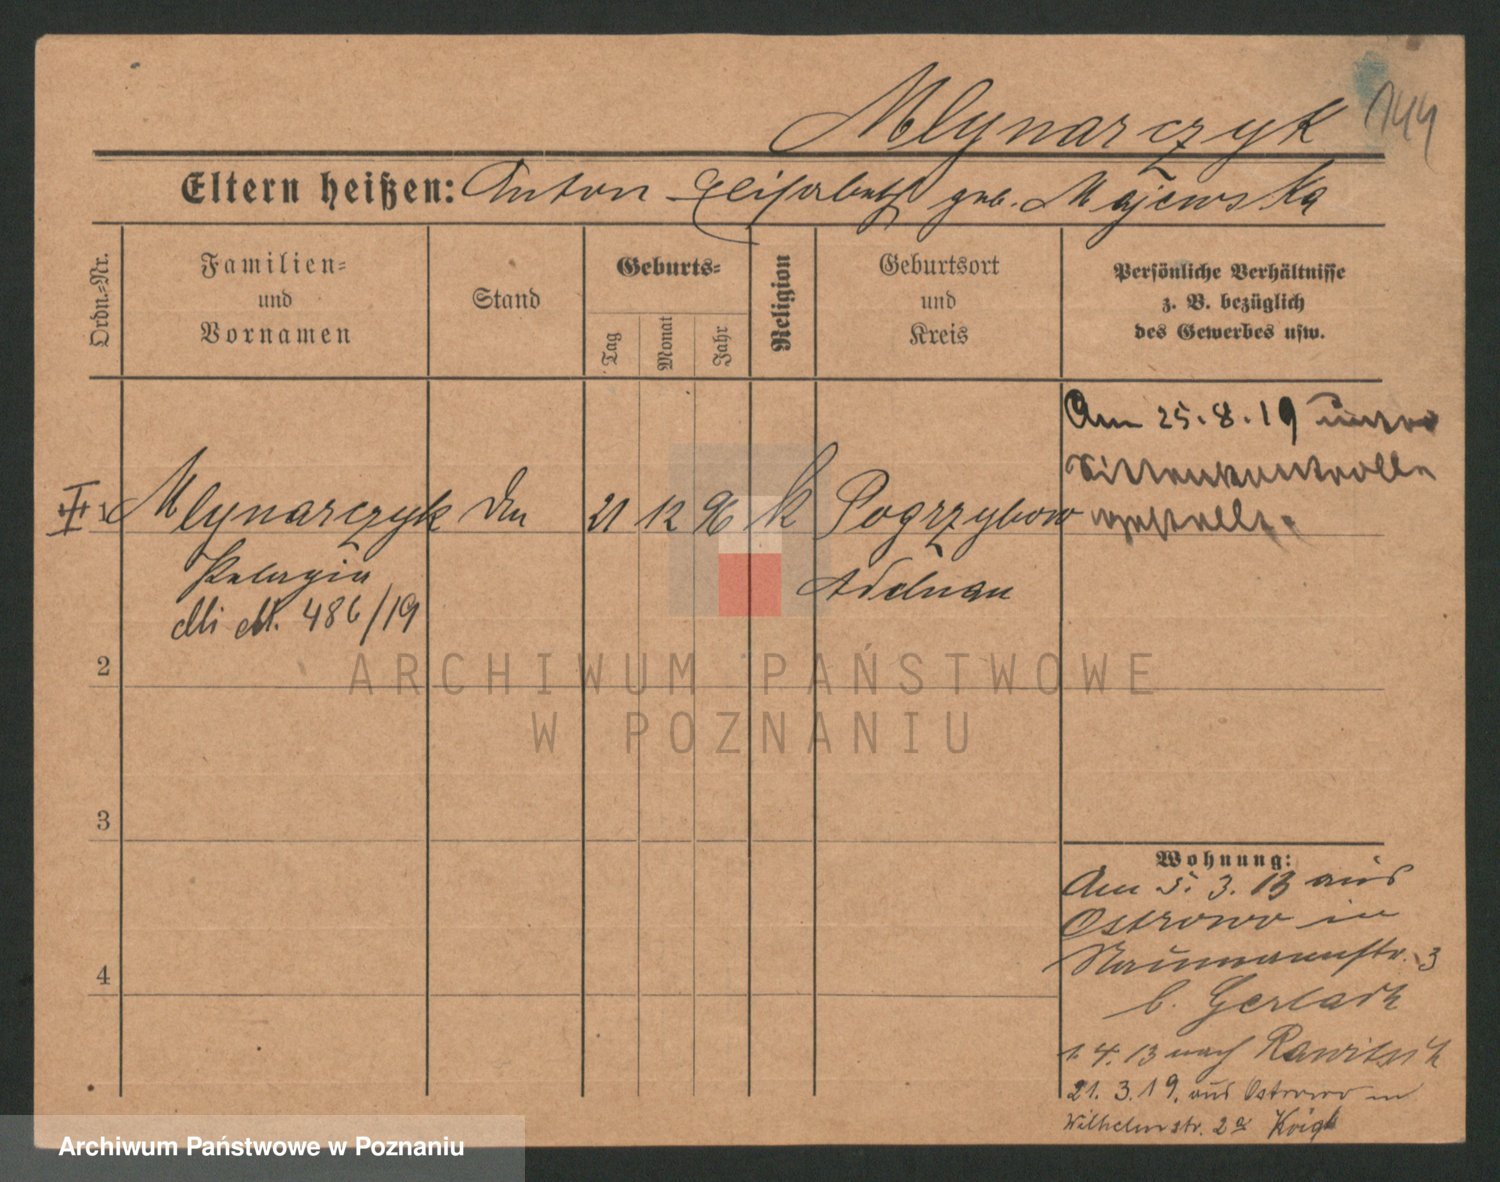 Mlynarczyk 144
Eltern heißen: Anton Elisabeth geb. Majewska
Ordn.-Nr.
Familien-
und
Vornamen
Stand
Geburts-
Tag
Monat
Jahr
Religion
Geburtsort
und
Kreis
Persönliche Verhältnisse
z. B. bezüglich
des Gewerbes usw.
Am 25.8.19 unter
Sittenkontrolle
gestellt.
1 Mlynarczyk 21 12 96 k Pogrzybow
Pelagia Adelnau
486/19
2
3
4
Wohnung:
Am 5.3.13 aus
Ostrowo in
Naumannstr. 3
b. Gerlach
1.4.13 nach Rawitsch
21.3.19. aus Ostrowo in
Wilhelmstr. 2a
ARCHIWUM PAŃSTWOWE
W POZNANIU
Archiwum Państwowe w Poznaniu